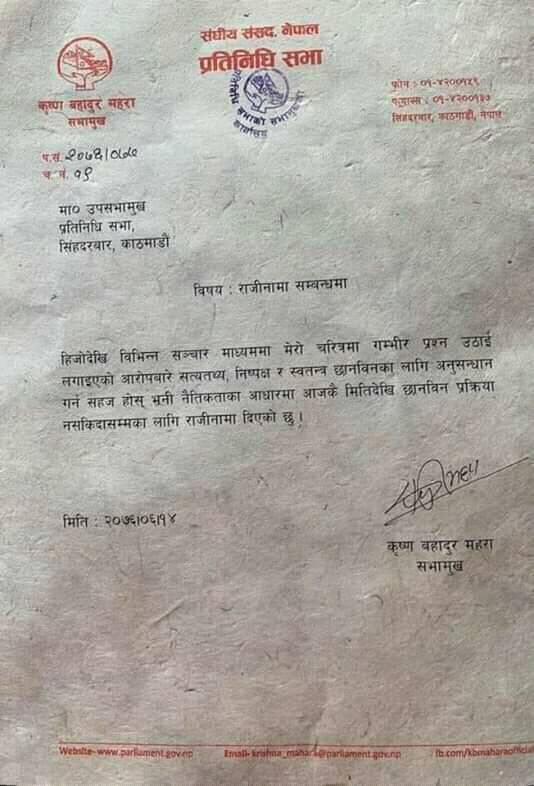 संघीय संसद, नेपाल
प्रतिनिधि सभा
प्रतिनिधि सभाको सभामुखको
कार्यालय
कृष्ण बहादुर महरा
सभामुख
फोन : ०१-४२००१४९
फ्याक्स : ०१-४२००१४७
सिंहदरबार, काठमाडौं, नेपाल
प.सं. २०७६।०७७
च. नं. ०९
मा० उपसभामुख
प्रतिनिधि सभा,
सिंहदरबार, काठमाडौं
विषय : राजीनामा सम्बन्धमा
हिजोदेखि विभिन्न सञ्चार माध्यममा मेरो चरित्रमा गम्भीर प्रश्न उठाई
लगाइएको आरोपबारे सत्यतथ्य, निष्पक्ष र स्वतन्त्र छानविनका लागि अनुसन्धान
गर्न सहज होस् भनी नैतिकताका आधारमा आजकै मितिदेखि छानविन प्रक्रिया
नसकिदासम्मका लागि राजीनामा दिएको छु ।
मिति : २०७६।०६।१४
कृष्ण बहादुर महरा
सभामुख
Website- www.parliament.gov.np Email- krishna_mahara@parliament.gov.np fb.com/kbmaharaofficial